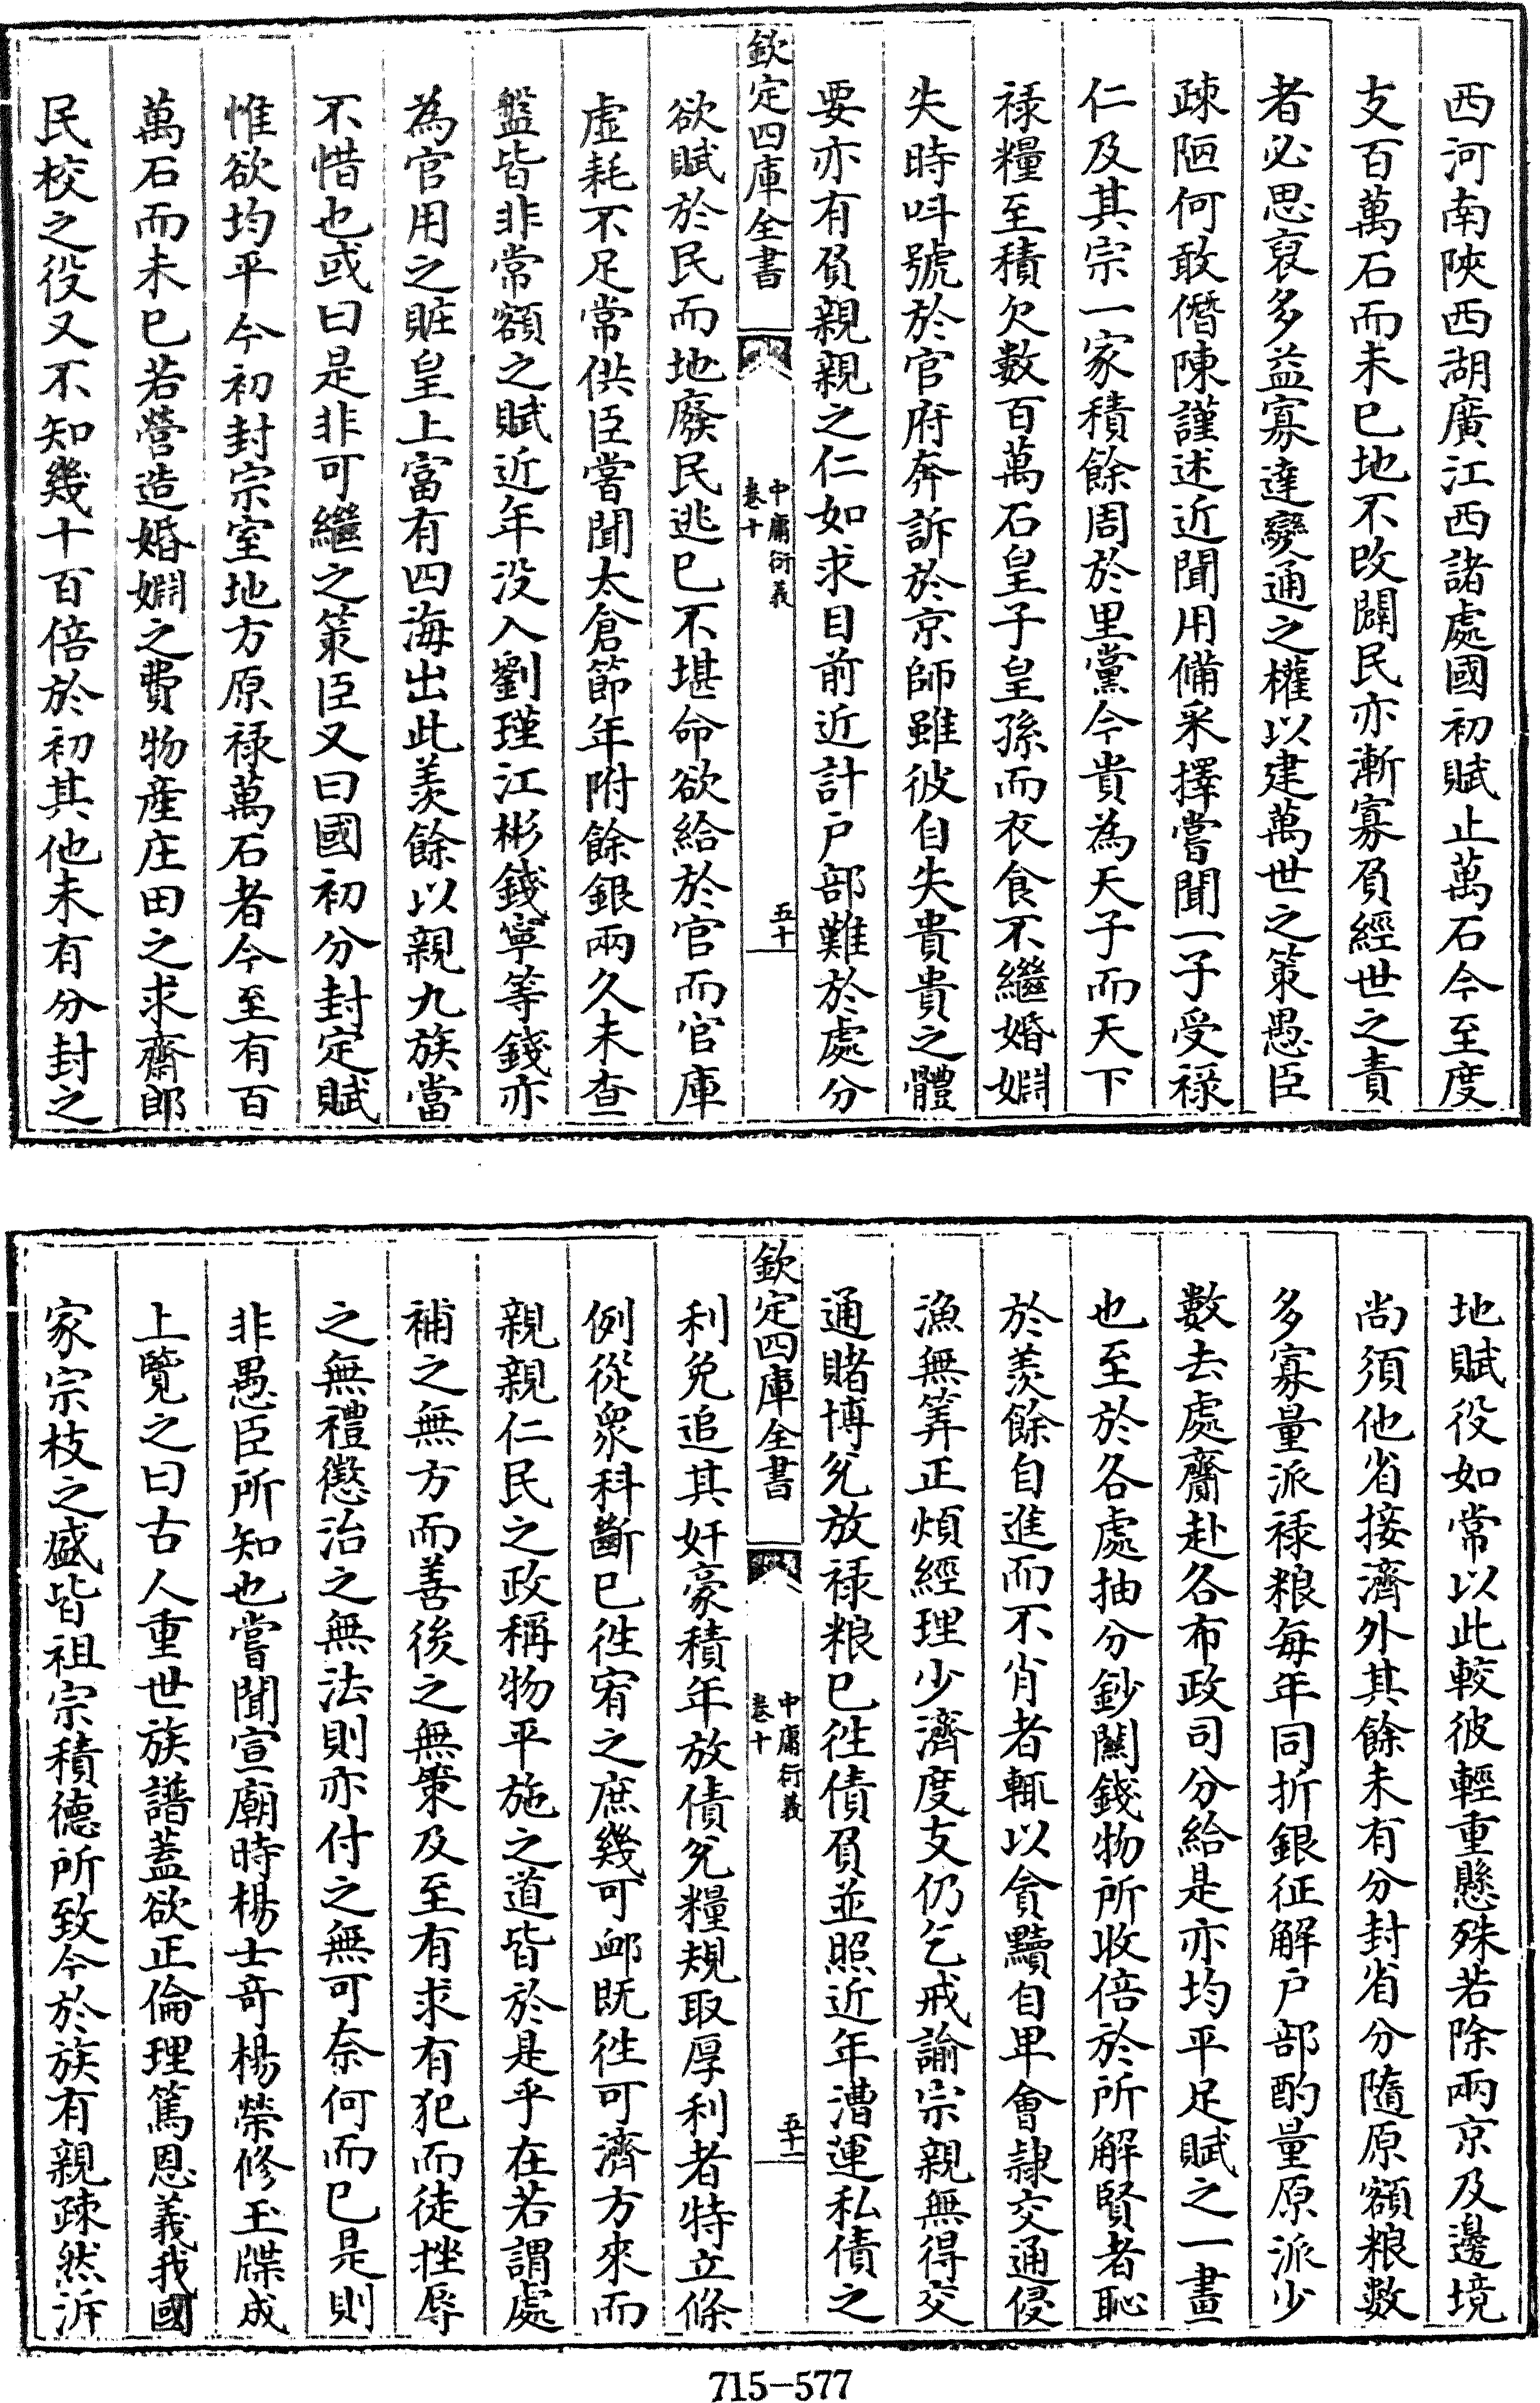 西河南陜西湖廣江西諸處國初賦止萬石今至度
支百萬石而未已地不改闢民亦漸寡負經世之責
者必思裒多益寡達變通之權以建萬世之策愚臣
疎陋何敢僭陳謹述近聞用備采擇嘗聞一子受禄
仁及其宗一家積餘周於里黨今貴為天子而天下
禄糧至積欠數百萬石皇子皇孫而衣食不繼婚婣
失時呌號於官府奔訴於京師雖彼自失貴貴之體
要亦有負親親之仁如求目前近計户部難於處分
欽定四庫全書
中庸衍義
卷十
五十
欲賦於民而地廢民逃已不堪命欲給於官而官庫
虚耗不足常供臣嘗聞太倉節年附餘銀兩久未查
盤皆非常額之賦近年没入劉瑾江彬錢寧等錢亦
為官用之賍皇上富有四海出此羨餘以親九族當
不惜也或曰是非可繼之策臣又曰國初分封定賦
惟欲均平今初封宗室地方原禄萬石者今至有百
萬石而未已若營造婚婣之費物產庄田之求齋郎
民校之役又不知幾十百倍於初其他未有分封之
地賦役如常以此較彼輕重懸殊若除兩京及邊境
尚須他省接濟外其餘未有分封省分隨原額粮數
多寡量派禄粮每年同折銀征解户部酌量原派少
數去處齎赴各布政司分給是亦均平足賦之一畫
也至於各處抽分鈔關錢物所收倍於所解賢者恥
於羨餘自進而不肖者輒以貪黷自卑會隷交通侵
漁無筭正煩經理少濟度支仍乞戒諭宗親無得交
通賭博兊放禄粮已徃債負並照近年漕運私債之
欽定四庫全書
中庸衍義
卷十
五十一
利免追其奸豪積年放債兊糧規取厚利者特立條
例從衆科斷已徃宥之庶幾可卹既徃可濟方來而
親親仁民之政稱物平施之道皆於是乎在若謂處
補之無方而善後之無策及至有求有犯而徒挫辱
之無禮懲治之無法則亦付之無可奈何而已是則
非愚臣所知也嘗聞宣廟時楊士竒楊榮修玉牒成
上覽之曰古人重世族譜蓋欲正倫理篤恩義我國
家宗枝之盛皆祖宗積德所致今於族有親疎然泝
715-577